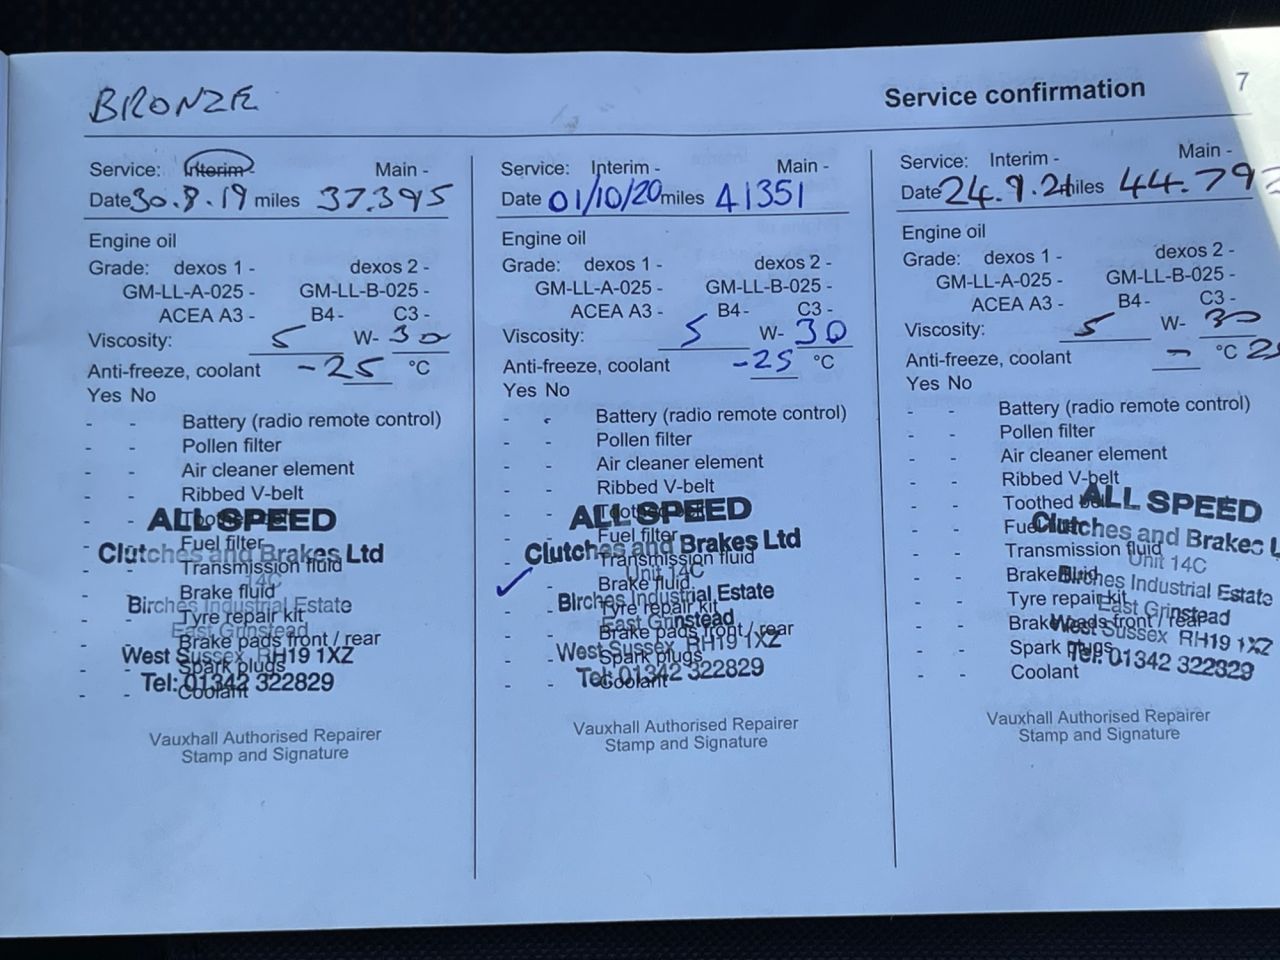 BRONZE
Service confirmation
7
Service: Interim - Main -
Date 30.8.19 miles 37.395
Engine oil
Grade: dexos 1 - dexos 2 -
GM-LL-A-025 - GM-LL-B-025 -
ACEA A3 - B4 - C3 -
Viscosity: 5 W- 30
Anti-freeze, coolant -25 °C
Yes No
- - Battery (radio remote control)
- - Pollen filter
- - Air cleaner element
- - Ribbed V-belt
ALL SPEED
- - Fuel filter
Clutches and Brakes Ltd
- - Transmission fluid
14C
- - Brake fluid
Birches Industrial Estate
- - Tyre repair kit
East Grinstead
- - Brake pads front / rear
West Sussex RH19 1XZ
- - Spark plugs
Tel: 01342 322829
- - Coolant
Vauxhall Authorised Repairer
Stamp and Signature
Service: Interim - Main -
Date 01/10/20 miles 41351
Engine oil
Grade: dexos 1 - dexos 2 -
GM-LL-A-025 - GM-LL-B-025 -
ACEA A3 - B4 - C3 -
Viscosity: 5 W- 30
Anti-freeze, coolant -25 °C
Yes No
- - Battery (radio remote control)
- - Pollen filter
- - Air cleaner element
- - Ribbed V-belt
ALL SPEED
- - Fuel filter
Clutches and Brakes Ltd
- - Transmission fluid
Unit 14C
✓ - Brake fluid
Birches Industrial Estate
- - Tyre repair kit
East Grinstead
- - Brake pads front / rear
West Sussex RH19 1XZ
- - Spark plugs
Tel: 01342 322829
- - Coolant
Vauxhall Authorised Repairer
Stamp and Signature
Service: Interim - Main -
Date 24.9.21 miles 44.79
Engine oil
Grade: dexos 1 - dexos 2 -
GM-LL-A-025 - GM-LL-B-025 -
ACEA A3 - B4 - C3 -
Viscosity: 5 W- 30
Anti-freeze, coolant - °C 25
Yes No
- - Battery (radio remote control)
- - Pollen filter
- - Air cleaner element
- - Ribbed V-belt
- - Toothed belt
ALL SPEED
- - Fuel filter
Clutches and Brakes L
- - Transmission fluid
Unit 14C
- - Brake fluid
Birches Industrial Estate
- - Tyre repair kit
East Grinstead
- - Brake pads front / rear
West Sussex RH19 1XZ
- - Spark plugs
Tel: 01342 322829
- - Coolant
Vauxhall Authorised Repairer
Stamp and Signature